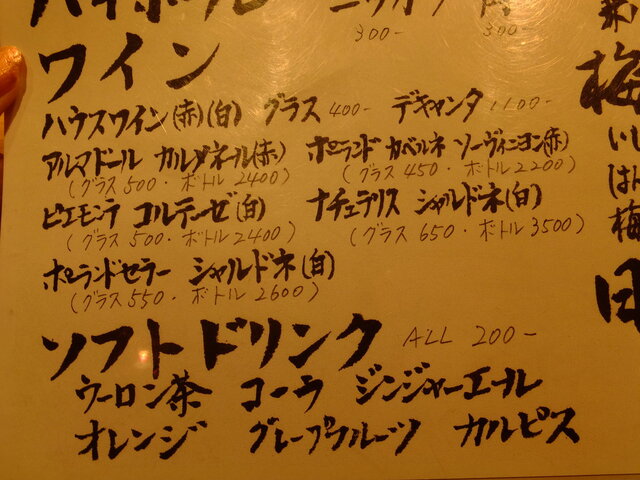 ハイボール ニッカ
300- 300-
ワイン
ハウスワイン(赤)(白) グラス 400- デキャンタ 1100-
アルマドール カルメネール(赤) ポーランド カベルネ ソーヴィニヨン(赤)
(グラス 500・ボトル 2400) (グラス 450・ボトル 2200)
ピエモンテ コルテーゼ(白) ナチュラリス シャルドネ(白)
(グラス 500・ボトル 2400) (グラス 650・ボトル 3500)
ポーランドセラー シャルドネ(白)
(グラス 550・ボトル 2600)
ソフトドリンク ALL 200-
ウーロン茶 コーラ ジンジャーエール
オレンジ グレープフルーツ カルピス
梅
梅